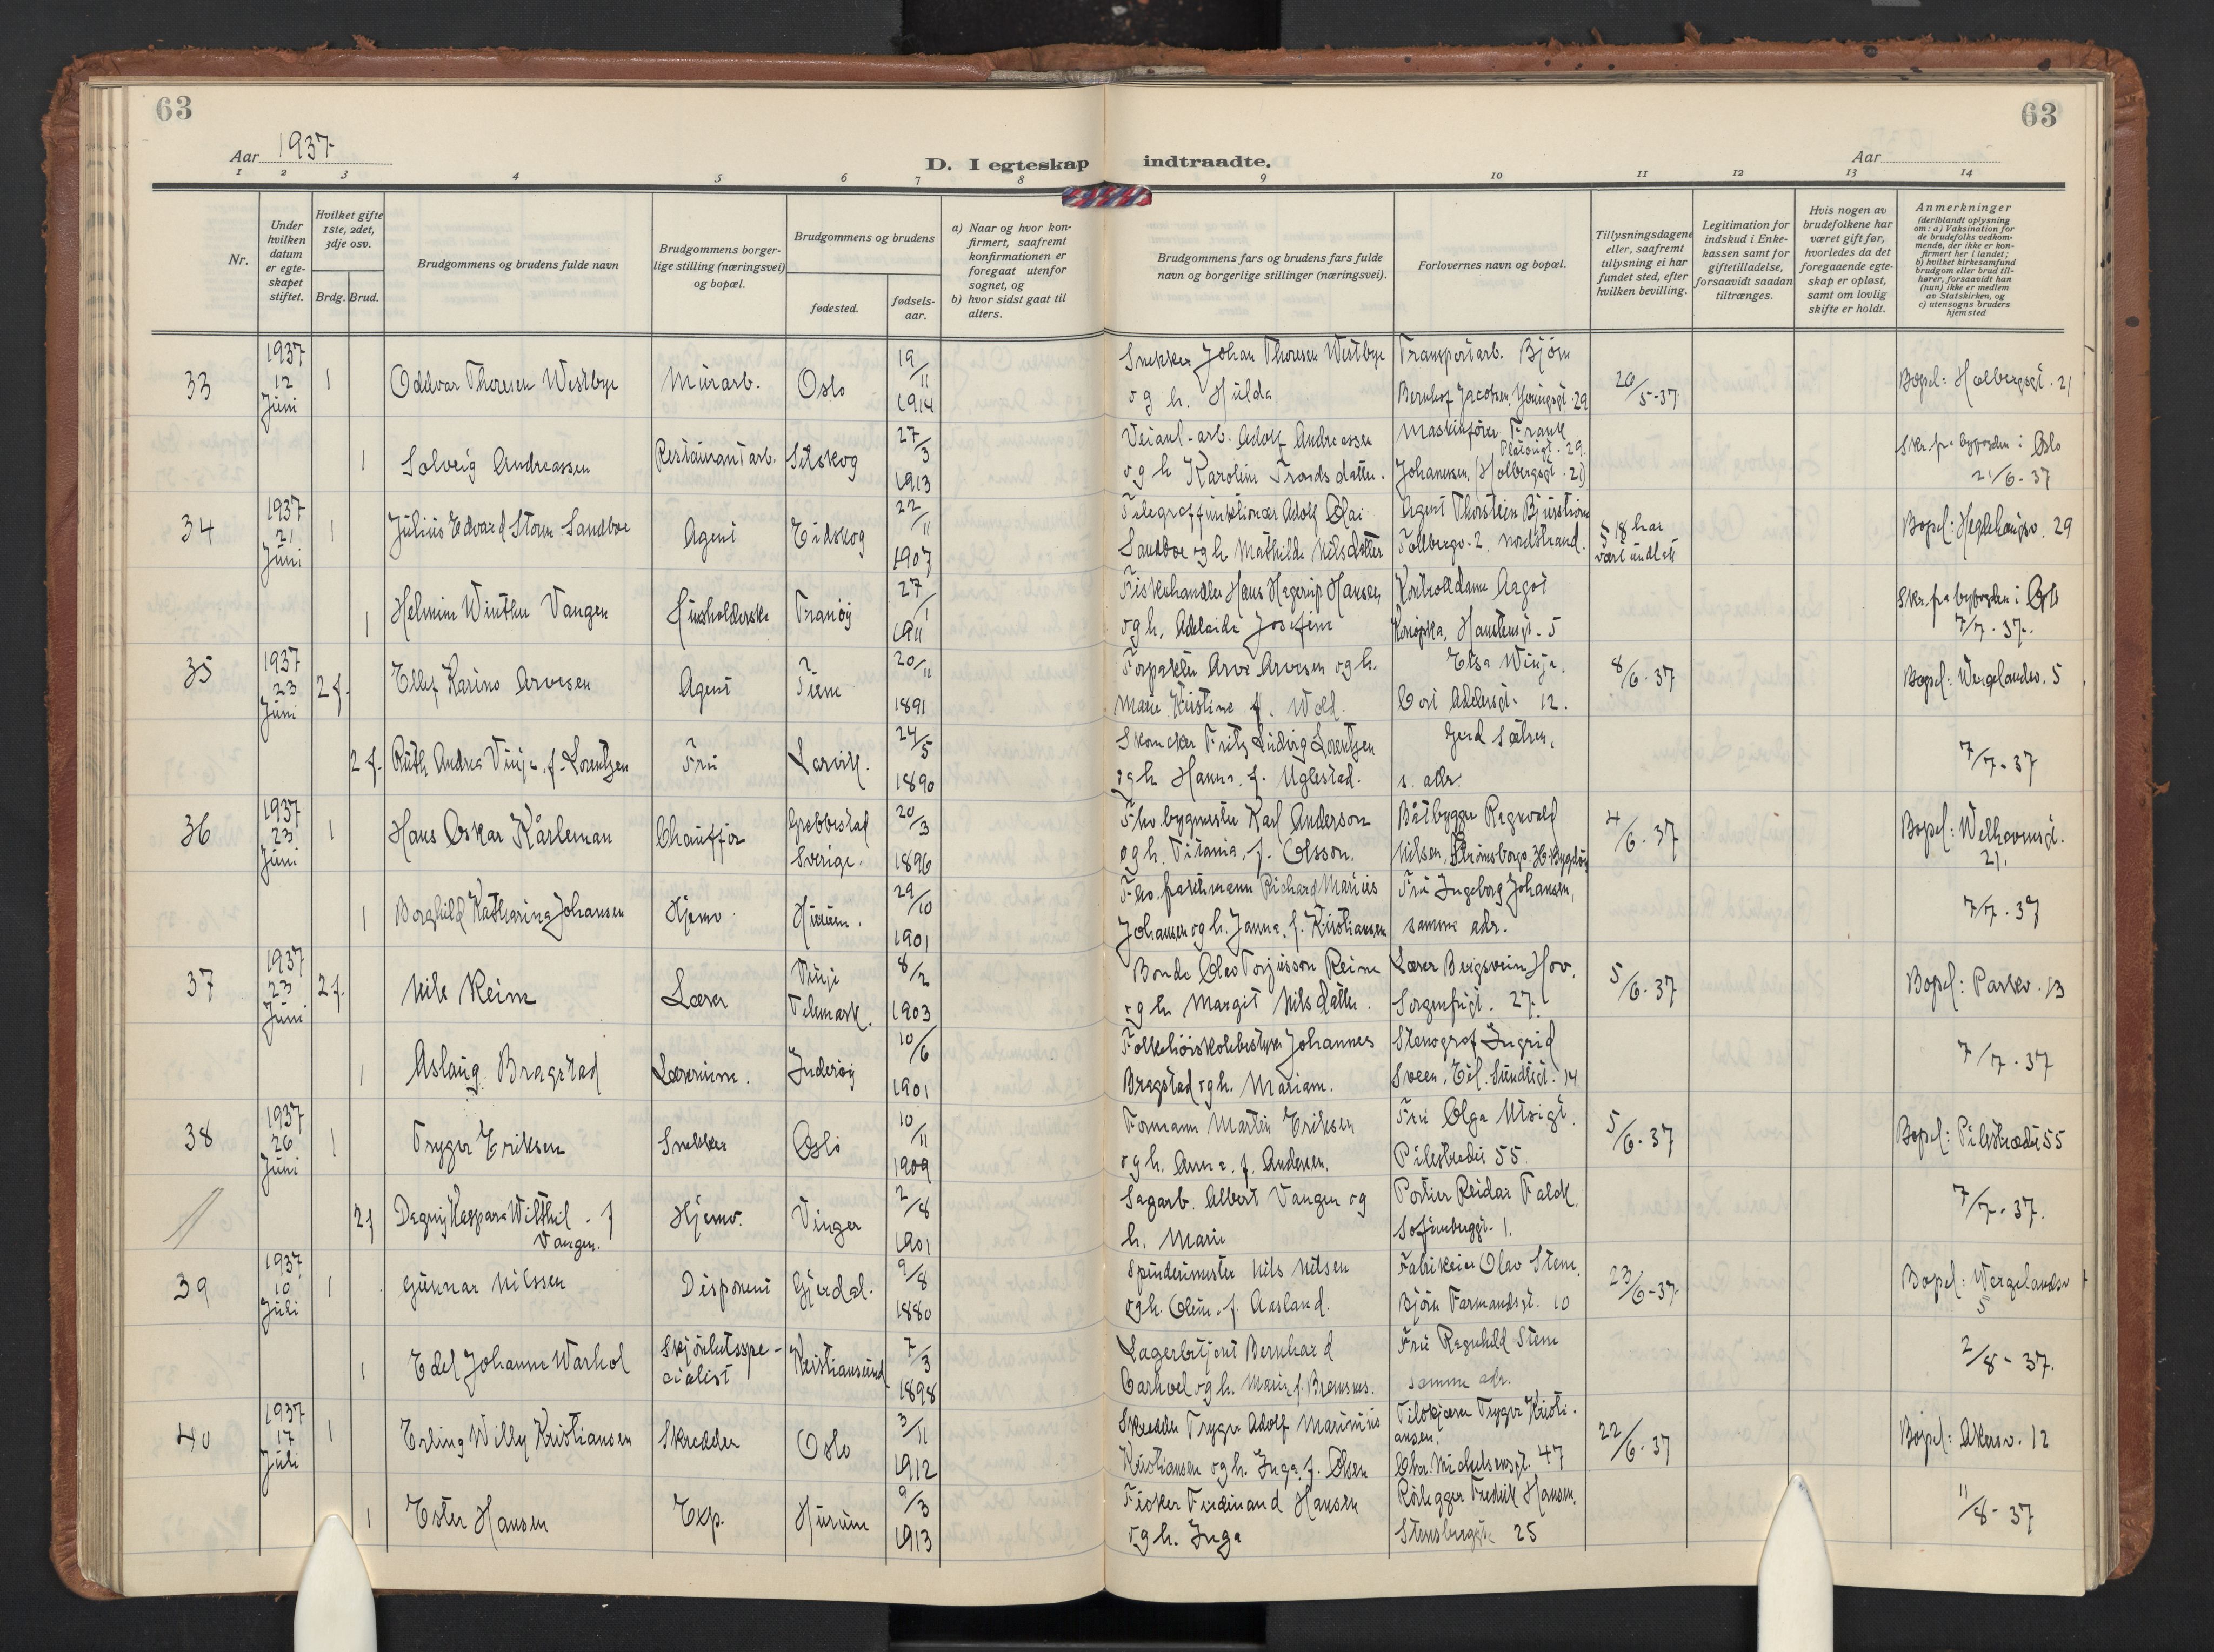 63
63
Aar 1937
D. I egteskap indtraadte.
Aar
1 2 3 4 5 6 7 8 9 10 11 12 13 14
Nr.
Under hvilken datum er egteskapet stiftet.
Hvilket gifte 1ste, 2det, 3dje osv.
Brdg. Brud.
Brudgommens og brudens fulde navn
Brudgommens borgerlige stilling (næringsvei) og bopæl.
Brudgommens og brudens
fødested.
fødselsaar.
a) Naar og hvor konfirmert, saafremt konfirmationen er foregaat utenfor sognet, og
b) hvor sidst gaat til alters.
Brudgommens fars og brudens fars fulde navn og borgerlige stillinger (næringsvei).
Forlovernes navn og bopæl.
Tillysningsdagene eller, saafremt tillysning ei har fundet sted, efter hvilken bevilling.
Legitimation for indskud i Enkekassen samt for giftetilladelse, forsaavidt saadan tiltrænges.
Hvis nogen av brudefolkene har været gift før, hvorledes da det foregaaende egteskap er opløst, samt om lovlig skifte er holdt.
Anmerkninger
(deriblandt oplysning om: a) Vaksination for de brudefolks vedkommende, der ikke er konfirmert her i landet;
b) hvilket kirkesamfund brudgom eller brud tilhører, forsaavidt han (hun) ikke er medlem av Statskirken, og
c) utensogns bruders hjemsted
33 1937 12 Juni 1 Oddvar Thoresen Westbye Murarb. Oslo 19/11 1914
Snekker Johan Thoresen Westbye
og h. Hulda
Transportarb. Bjørn
Bernhof Jacobsen, Youngsgt. 29
20/5-37
Bopel: Holbergsgt. 21
1 Solveig Andreassen Restaurantarb. Setskog 27/3 1913
Veianl.-arb. Adolf Andreassen
og h Karoline Trondsdatter.
Maskinfører Frank
Platousgt. 29.
Johannesen, (Holbergsgt. 21)
Skr. fra byfogden i Oslo
21/6-37
34 1937 21 Juni 1 Julius Edvard Storm Sandboe Agent Eidskog 22/11 1907
Telegraffunktionær Adolf Olai
Sandboe og h Mathilde Nilsdatter
Agent Thorstein Bjurstrøm
2, Nordstrand.
§ 18 har
vært undlatt
Bopel: Hegdehaugsv. 29
1 Helmine Winther Vangen Husholderske Tranøy 27/1 1911
Fiskehandler Hans Hagerup Hansen
og h. Adelaide Josefine
Kontrolldame Aagot
Konopka, Hausteensgt. 5
Skr. fra byfogden i Oslo
7/7-37.
35 1937 23 Juni 2 f. Ellef Karino Arvesen Agent 20/11 1891
Forpakter Arve Arvesen og h.
Marie Kirstine f. Wold.
Elsa Winje.
Cort Adelersgt. 12.
8/6-37
Bopel: Wergelandsv. 5
2 f. Ruth Andrea Vinje, f. Lorentzen Fru Larvik. 24/5 1890
Skomaker Fritz Ludvig Lorentzen
og h Hanna f. Uglestad.
Gerd Sætren,
s. adr.
7/7-37
36 1937 23 Juni 1 Hans Oskar Kårleman Chauffør Grebbestad Sverige. 20/3 1896
Fhv. bygmester Karl Anderson
og h. Titania, f. Olsson.
Båtbygger Ragnvald
Nilsen, Strømsborgv. 36. Bygdøy
4/6-37
Bopel: Welhavensgt.
21.
1 Borghild Katharina Johansen Hjemv. Hurum. 29/10 1901
Fhv. Richard Marius
Johansen og h. Janna, f. Kristiansen
Fru Ingeborg Johansen,
samme adr.
7/7-37
37 1937 23 Juni 2 f. Nils Reine Lærer Vinje Telemark. 8/2 1903
Bonde Olav Torjusson Reine
og h Margit Nilsdatter.
Lærer Bergsvein Hov,
Sorgenfrigt. 27.
5/6-37
Bopel: Parkv. 13
1 Aslaug Bragstad Lærerinne. Inderøy 10/6 1901
Folkehøiskolebestyrer Johannes
Bragstad og h. Mariann.
Stenograf Ingrid
Sveen, Eil. Sundtsgt. 14
7/7-37
38 1937 26 Juni 1 Trygve Eriksen Snekker Oslo 10/11 1909
Formann Martin Eriksen
og h. Anna, f. Andersen.
Fru Olga Utsigt.
Pilestredet 55.
5/6-37
Bopel: Pilestrædet 55
2 f Dagny Kaspara Wilthil - f
Vangen. Hjemv. Vinger 2/8 1901
Sagarb. Albert Vangen og
h. Marie
Portier Reidar Falck.
Sofienberggt. 1.
7/7-37.
39 1937 10 Juli 1 Gunnar Nilssen Disponent Gjesdal. 9/8 1880
Spinderimester Nils Nilsen
og h. Oline f. Aasland.
Fabrikeier Olav Stene,
Bjørn Farmandsgt. 10
23/6-37
Bopel: Wergelandsv
5
1 Edel Johanne Warhol Skjønhetsspecialist Kristiansund 7/3 1898
Lagerbetjent Bernhard
Carhvel og h. Marie f. Bremsnes.
Fru Ragnhild Stene
samme adr.
2/8-37.
40 1937 17 Juli 1 Erling Willy Kristiansen Skredder Oslo 3/11 1912
Skredder Trygve Adolf Marinius
Kristiansen og h. Inga, f. Olsen
Tilskjærer Trygve Kristiansen,
Chr. Michelsensgt. 47
22/6-37
Bopel: Akersv. 12
1 Ester Hansen Exp. Hurum 9/3 1913
Fisker Ferdinand Hansen
og h. Inga
Rørlegger Fredrik Hansen,
Stensberggt. 25
11/8-37